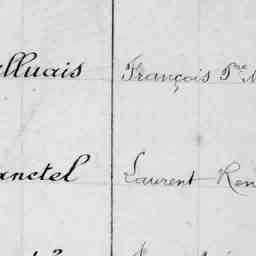 lluais François 5me M
anctel Laurent Ren